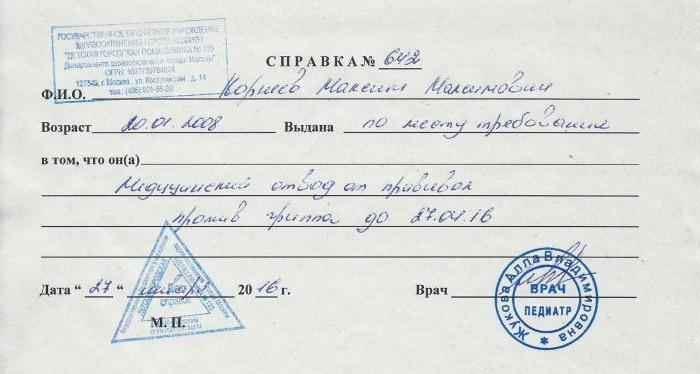 ГОСУДАРСТВЕННОЕ БЮДЖЕТНОЕ УЧРЕЖДЕНИЕ
ЗДРАВООХРАНЕНИЯ ГОРОДА МОСКВЫ
"ДЕТСКАЯ ГОРОДСКАЯ ПОЛИКЛИНИКА № 125
Департамента здравоохранения города Москвы"
127549, г. Москва, ул. 14
СПРАВКА № 642
Ф.И.О. Корнеев Максим Максимович
Возраст 20.01.2008 Выдана по месту требования
в том, что он(а)
Медицинский отвод от прививок
против гриппа до 27.04.16
Дата “ 27 “ января 2016 г. Врач
М. П.
Жукова Алла Владимировна
ВРАЧ
ПЕДИАТР